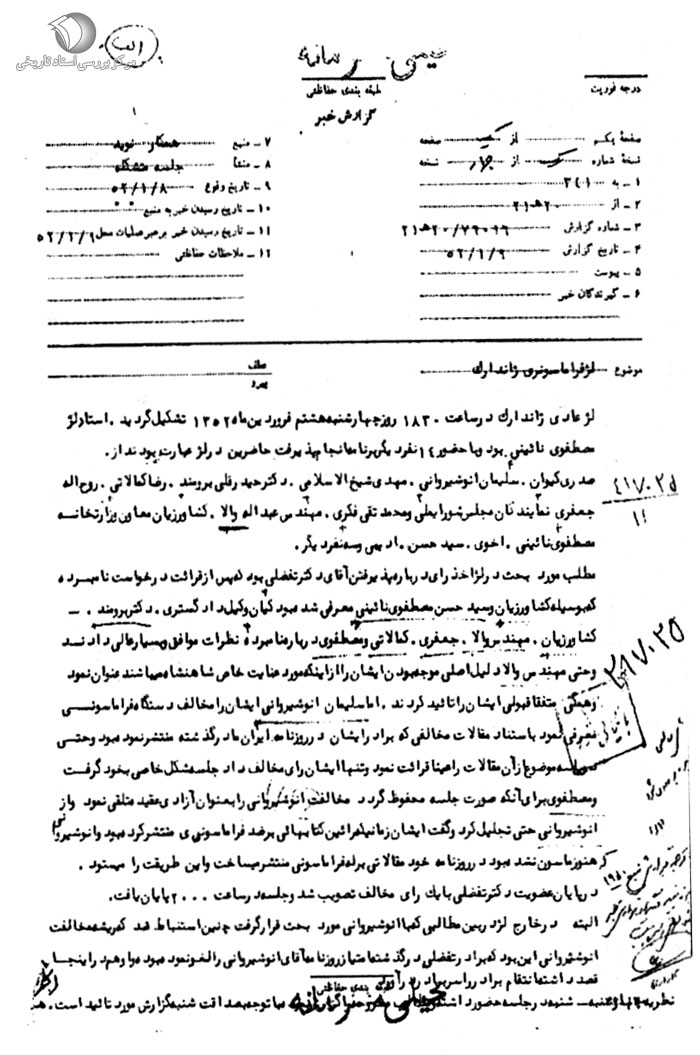 مرکز بررسی اسناد تاریخی
الف
خیلی محرمانه
طبقه بندی حفاظتی
گزارش خبر
درجه فوریت
صفحه یکم از یک صفحه
نسخه شماره یک از چهار نسخه
۱ - به ۳۴۱
۲ - از ۲۰ هـ ۲۱
۳ - شماره گزارش ۲۱ هـ ۲۰/۷۹۰۹۹
۴ - تاریخ گزارش ۵۲/۱/۹
۵ - پیوست
۶ - گیرندگان خبر
۷ - منبع همکار نوید
۸ - منشأ جلسه متشکله
۹ - تاریخ وقوع ۵۲/۱/۸
۱۰ - تاریخ رسیدن خبر به منبع
۱۱ - تاریخ رسیدن خبر به رهبر عملیات محل ۵۲/۱/۹
۱۲ - ملاحظات حفاظتی
موضوع لژ فراماسونری ژاندارك
عطف
پیرو
لژ عادی ژاندارك در ساعت ۱۸۳۰ روز چهارشنبه هشتم فروردین ماه ۱۳۵۲ تشکیل گردید. استاد لژ
مصطفوی نائینی بود و با حضور ۱۴ نفر دیگر برنامه انجام پذیرفت حاضرین در لژ عبارت بودند از.
صدری کیوان. سلیمان انوشیروانی. مهدی شیخ الاسلامی. دکتر حیدرقلی برومند. رضا کمالاتی. روح اله
جعفری نمایندگان مجلس شورایملی و محمد تقی فکری. مهندس عبداله والا. کشاورزیان معاون وزارتخانه
مصطفوی نائینی. اخوی. سید حسن. ادیمی و سه نفر دیگر.
مطلب مورد بحث در لژ اخذ رای درباره پذیرفتن آقای دکتر تفضلی بود که پس از قرائت درخواست نامبرده
که بوسیله کشاورزیان و سید حسن مصطفوی نائینی معرفی شده بود کیان وکیل دادگستری. دکتر برومند. -
کشاورزیان. مهندس والا. جعفری. کمالاتی و مصطفوی درباره نامبرده نظرات موافق و بسیار عالی دادند
و حتی مهندس والا دلیل اصلی موجه بودن ایشان را از اینکه مورد عنایت خاص شاهنشاه میباشند عنوان نمود
و همگی متفقا قبولی ایشان را تائید کردند. اما سلیمان انوشیروانی ایشان را مخالف دستگاه فراماسونی
معرفی نمود باستناد مقالات مخالفی که برادر ایشان در روزنامه ایران ما در گذشته منتشر نموده بود و حتی
دو سه موضوع از آن مقالات را عینا قرائت نمود و تنها ایشان رای مخالف داد جلسه شکل خاصی بخود گرفت
و مصطفوی برای آنکه صورت جلسه محفوظ گردد مخالفت انوشیروانی را بعنوان آزادی عقیده تلقی نمود و از
انوشیروانی حتی تجلیل کرد و گفت ایشان زمانیکه راثین کتابهائی بر ضد فراماسونری منتشر کرده بود و انوشیروانی
که هنوز ماسون نشده بود در روزنامه خود مقالاتی بر له فراماسونی منتشر میساخت و این طریقت را میستود.
در پایان عضویت دکتر تفضلی با یك رای مخالف تصویب شد و جلسه در ساعت ۲۰۰۰ پایان یافت.
البته در خارج لژ در بین مطالبی که با انوشیروانی مورد بحث قرار گرفت چنین استنباط شد که ریشه مخالفت
انوشیروانی این بود که برادر تفضلی در گذشته امتیاز روزنامه آقای انوشیروانی را لغو نموده بود و او هم در اینجا
قصد داشته انتقام برادر را بر سر برادر در آورد
طبقه بندی حفاظتی
خیلی محرمانه
نظریه چهارشنبه - شنبه در جلسه حضور داشته با توجه بصداقت شنبه گزارش مورد تائید است.
۴۱۷۰۲۵
۱۱
۳۱۷۰۲۵
بایگانی